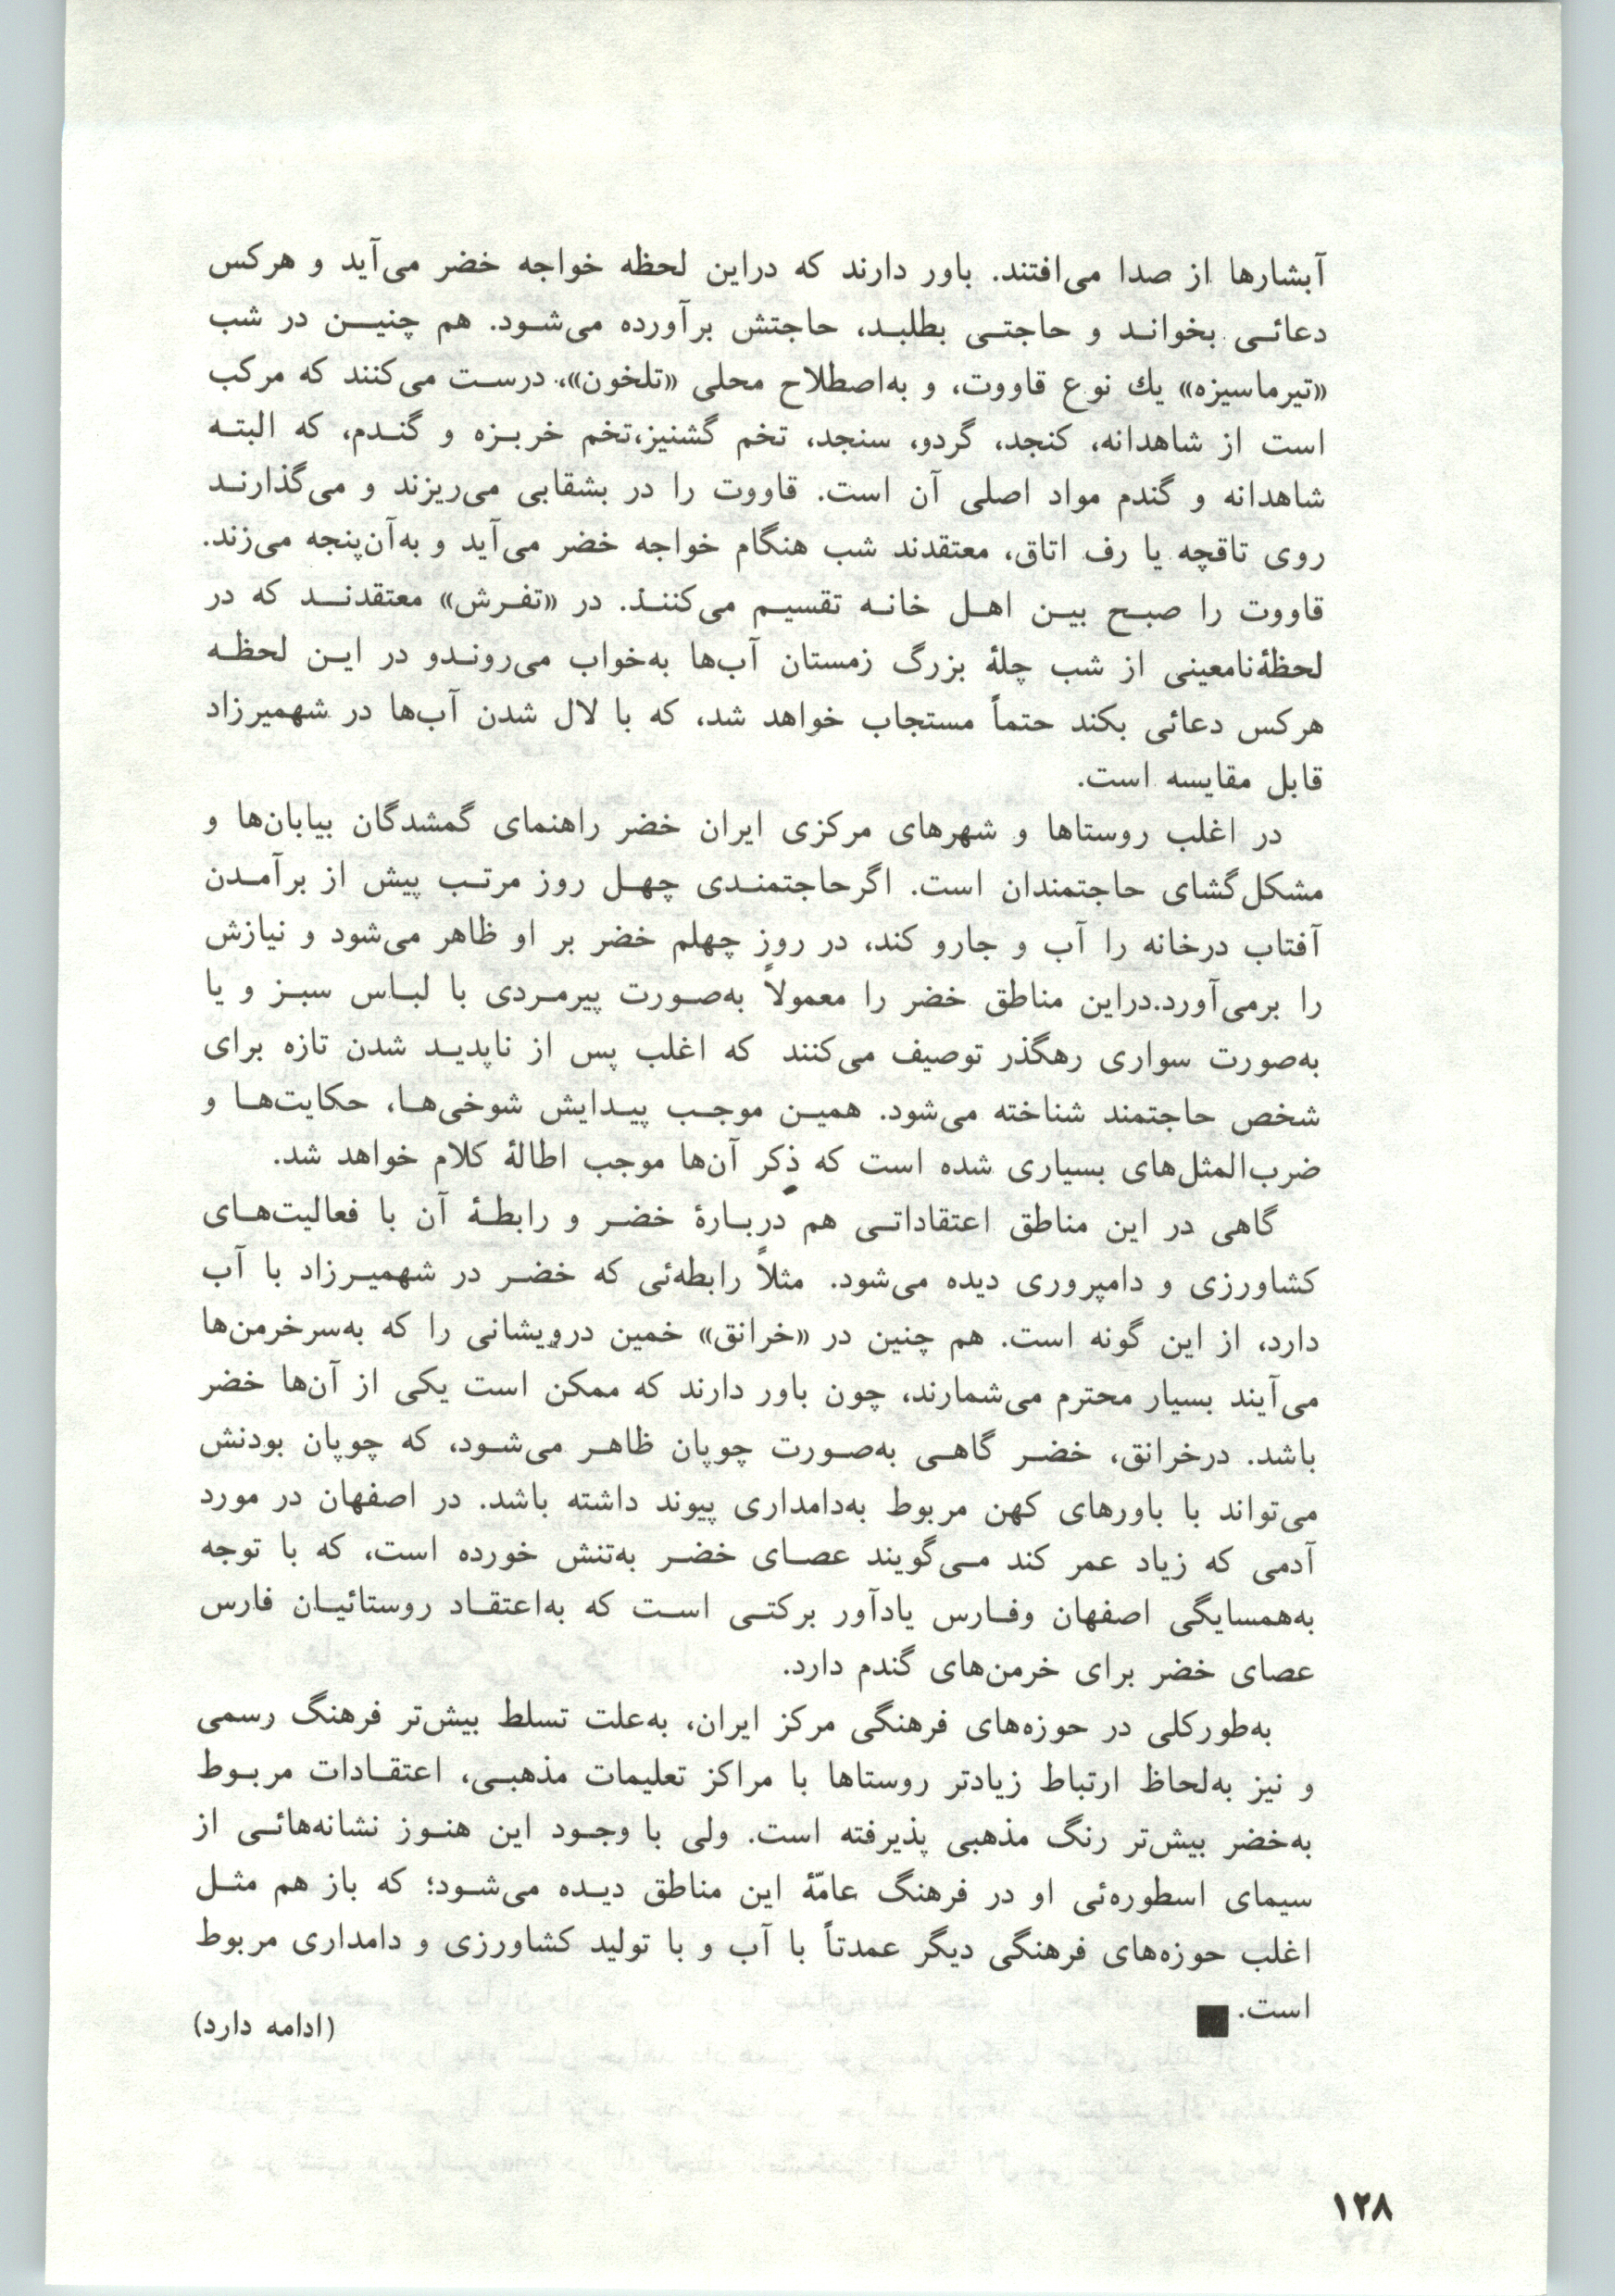 آبشارها از صدا می‌افتند. باور دارند که دراین لحظه خواجه خضر می‌آید و هرکس
دعائی بخواند و حاجتی بطلبد، حاجتش برآورده می‌شود. هم چنین در شب
«تیرماسیزه» یك نوع قاووت، و به‌اصطلاح محلی «تلخون»، درست می‌کنند که مرکب
است از شاهدانه، کنجد، گردو، سنجد، تخم گشنیز،تخم خربزه و گندم، که البته
شاهدانه و گندم مواد اصلی آن است. قاووت را در بشقابی می‌ریزند و می‌گذارند
روی تاقچه یا رف اتاق، معتقدند شب هنگام خواجه خضر می‌آید و به‌آن‌پنجه می‌زند.
قاووت را صبح بین اهل خانه تقسیم می‌کنند. در «تفرش» معتقدند که در
لحظهٔ‌نامعینی از شب چلهٔ بزرگ زمستان آب‌ها به‌خواب می‌روندو در این لحظه
هرکس دعائی بکند حتماً مستجاب خواهد شد، که با لال شدن آب‌ها در شهمیرزاد
قابل مقایسه است.
در اغلب روستاها و شهرهای مرکزی ایران خضر راهنمای گمشدگان بیابان‌ها و
مشکل‌گشای حاجتمندان است. اگرحاجتمندی چهل روز مرتب پیش از برآمدن
آفتاب درخانه را آب و جارو کند، در روز چهلم خضر بر او ظاهر می‌شود و نیازش
را برمی‌آورد.دراین مناطق خضر را معمولاً به‌صورت پیرمردی با لباس سبز و یا
به‌صورت سواری رهگذر توصیف می‌کنند که اغلب پس از ناپدید شدن تازه برای
شخص حاجتمند شناخته می‌شود. همین موجب پیدایش شوخی‌ها، حکایت‌ها و
ضرب‌المثل‌های بسیاری شده است که ذکر آن‌ها موجب اطالهٔ کلام خواهد شد.
گاهی در این مناطق اعتقاداتی هم دربارهٔ خضر و رابطهٔ آن با فعالیت‌های
کشاورزی و دامپروری دیده می‌شود. مثلاً رابطه‌ئی که خضر در شهمیرزاد با آب
دارد، از این گونه است. هم چنین در «خرانق» خمین درویشانی را که به‌سرخرمن‌ها
می‌آیند بسیار محترم می‌شمارند، چون باور دارند که ممکن است یکی از آن‌ها خضر
باشد. درخرانق، خضر گاهی به‌صورت چوپان ظاهر می‌شود، که چوپان بودنش
می‌تواند با باورهای کهن مربوط به‌دامداری پیوند داشته باشد. در اصفهان در مورد
آدمی که زیاد عمر کند می‌گویند عصای خضر به‌تنش خورده است، که با توجه
به‌همسایگی اصفهان وفارس یادآور برکتی است که به‌اعتقاد روستائیان فارس
عصای خضر برای خرمن‌های گندم دارد.
به‌طورکلی در حوزه‌های فرهنگی مرکز ایران، به‌علت تسلط بیش‌تر فرهنگ رسمی
و نیز به‌لحاظ ارتباط زیادتر روستاها با مراکز تعلیمات مذهبی، اعتقادات مربوط
به‌خضر بیش‌تر رنگ مذهبی پذیرفته است. ولی با وجود این هنوز نشانه‌هائی از
سیمای اسطوره‌ئی او در فرهنگ عامّهٔ این مناطق دیده می‌شود؛ که باز هم مثل
اغلب حوزه‌های فرهنگی دیگر عمدتاً با آب و با تولید کشاورزی و دامداری مربوط
است. ■
(ادامه دارد)
۱۲۸